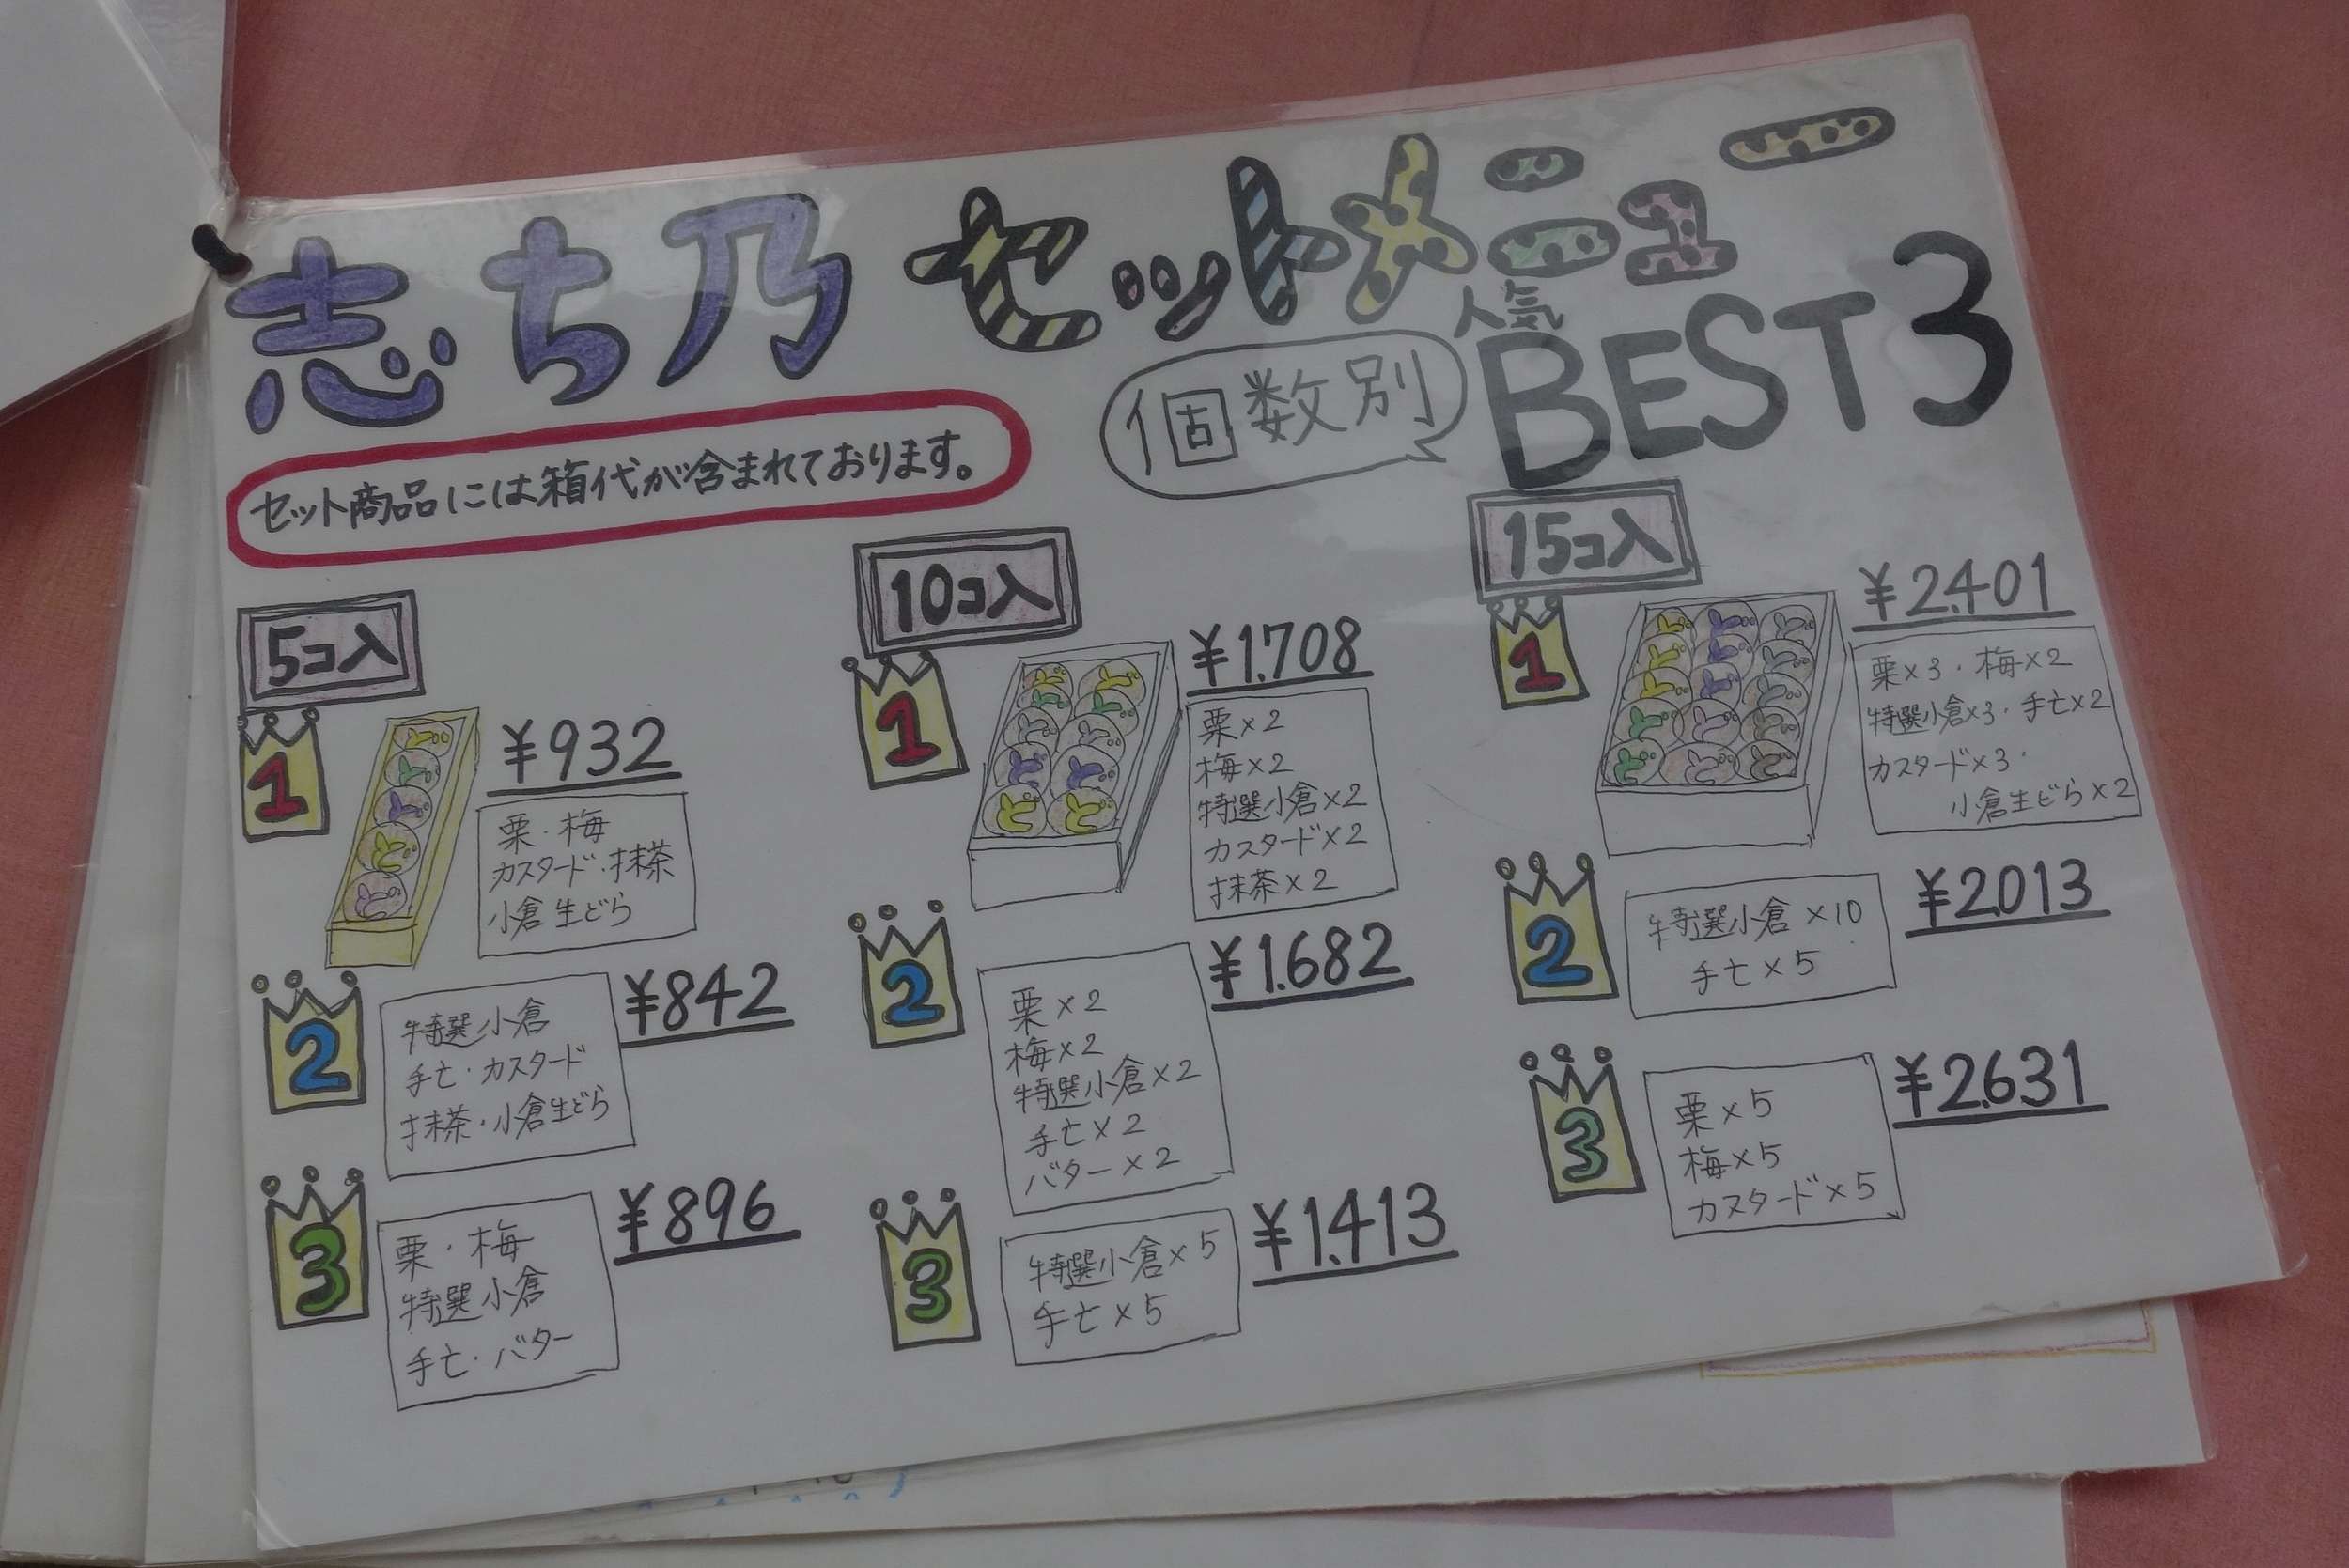 志ち乃 セットメニュー
個数別
人気
BEST3
セット商品には箱代が含まれております。
5コ入
1
¥932
栗・梅
カスタード・抹茶
小倉生どら
2
¥842
特選小倉
手亡・カスタード
抹茶・小倉生どら
3
¥896
栗・梅
特選小倉
手亡・バター
10コ入
1
¥1.708
栗×2
梅×2
特選小倉×2
カスタード×2
抹茶×2
2
¥1.682
栗×2
梅×2
特選小倉×2
手亡×2
バター×2
3
¥1.413
特選小倉×5
手亡×5
15コ入
1
¥2.401
栗×3・梅×2
特選小倉×3・手亡×2
カスタード×3・
小倉生どら×2
2
¥2.013
特選小倉×10
手亡×5
3
¥2.631
栗×5
梅×5
カスタード×5